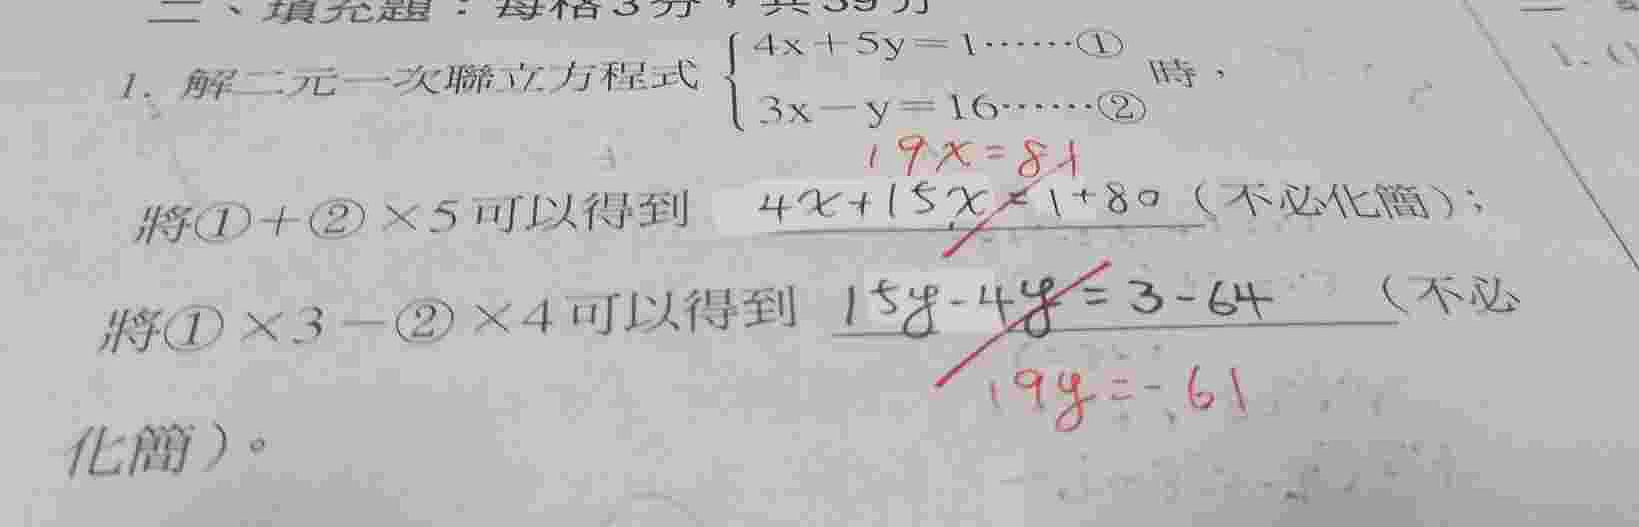 二、填充題：每格3分，共39分
1. 解二元一次聯立方程式 { 4x＋5y＝1……①
3x－y＝16……② 時，
19x=81
將①＋②×5可以得到 4x+15x=1+80（不必化簡）；
將①×3－②×4可以得到 15y-4y=3-64（不必
19y=-61
化簡）。